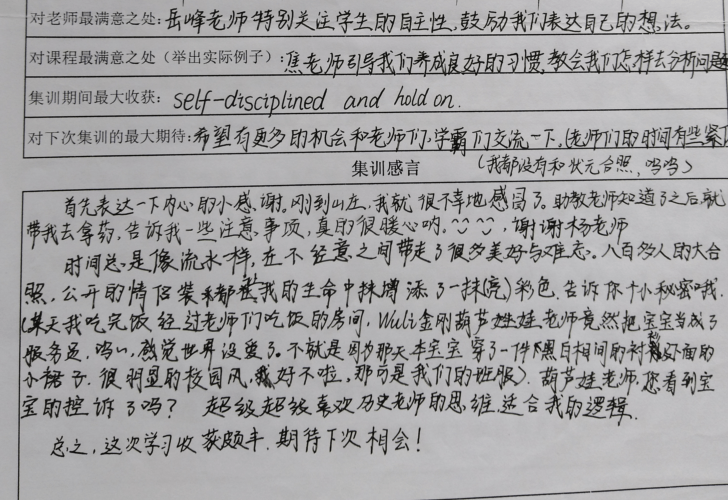 对老师最满意之处:岳峰老师特别关注学生的自主性,鼓励我们表达自己的想法。
对课程最满意之处(举出实际例子):焦老师引导我们养成良好的习惯,教会我们怎样去分析问题
集训期间最大收获: self-disciplined and hold on.
对下次集训的最大期待:希望有更多的机会和老师们,学霸们交流一下.(老师们的时间有些紧
集训感言 (我都没有和状元合照,呜呜)
首先表达一下内心的小感谢。刚到山庄,我就很不幸地感冒了。助教老师知道了之后,就
带我去拿药,告诉我一些注意事项,真的很暖心呐。谢谢杨老师
时间总是像流水一样,在不经意之间带走了很多美好与难忘。八百多人的大合
照,公开的情侣装都在我的生命中增添了一抹(亮)彩色.告诉你个小秘密哦.
(某天我吃完饭经过老师们吃饭的房间,Wuli金刚葫芦娃娃老师竟然把宝宝当成了
服务员,呜~,感觉世界没爱了。不就是因为那天本宝宝穿了一件下黑白相间的衬衫外面的
小裙子.很明显的校园风,好不啦,那可是我们的班服).葫芦娃老师,您看到宝
宝的控诉了吗? 超级超级喜欢历史老师的思维,适合我的逻辑.
总之,这次学习收获颇丰.期待下次相会!